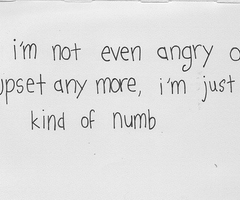 i'm not even angry o
upset any more, i'm just
kind of numb